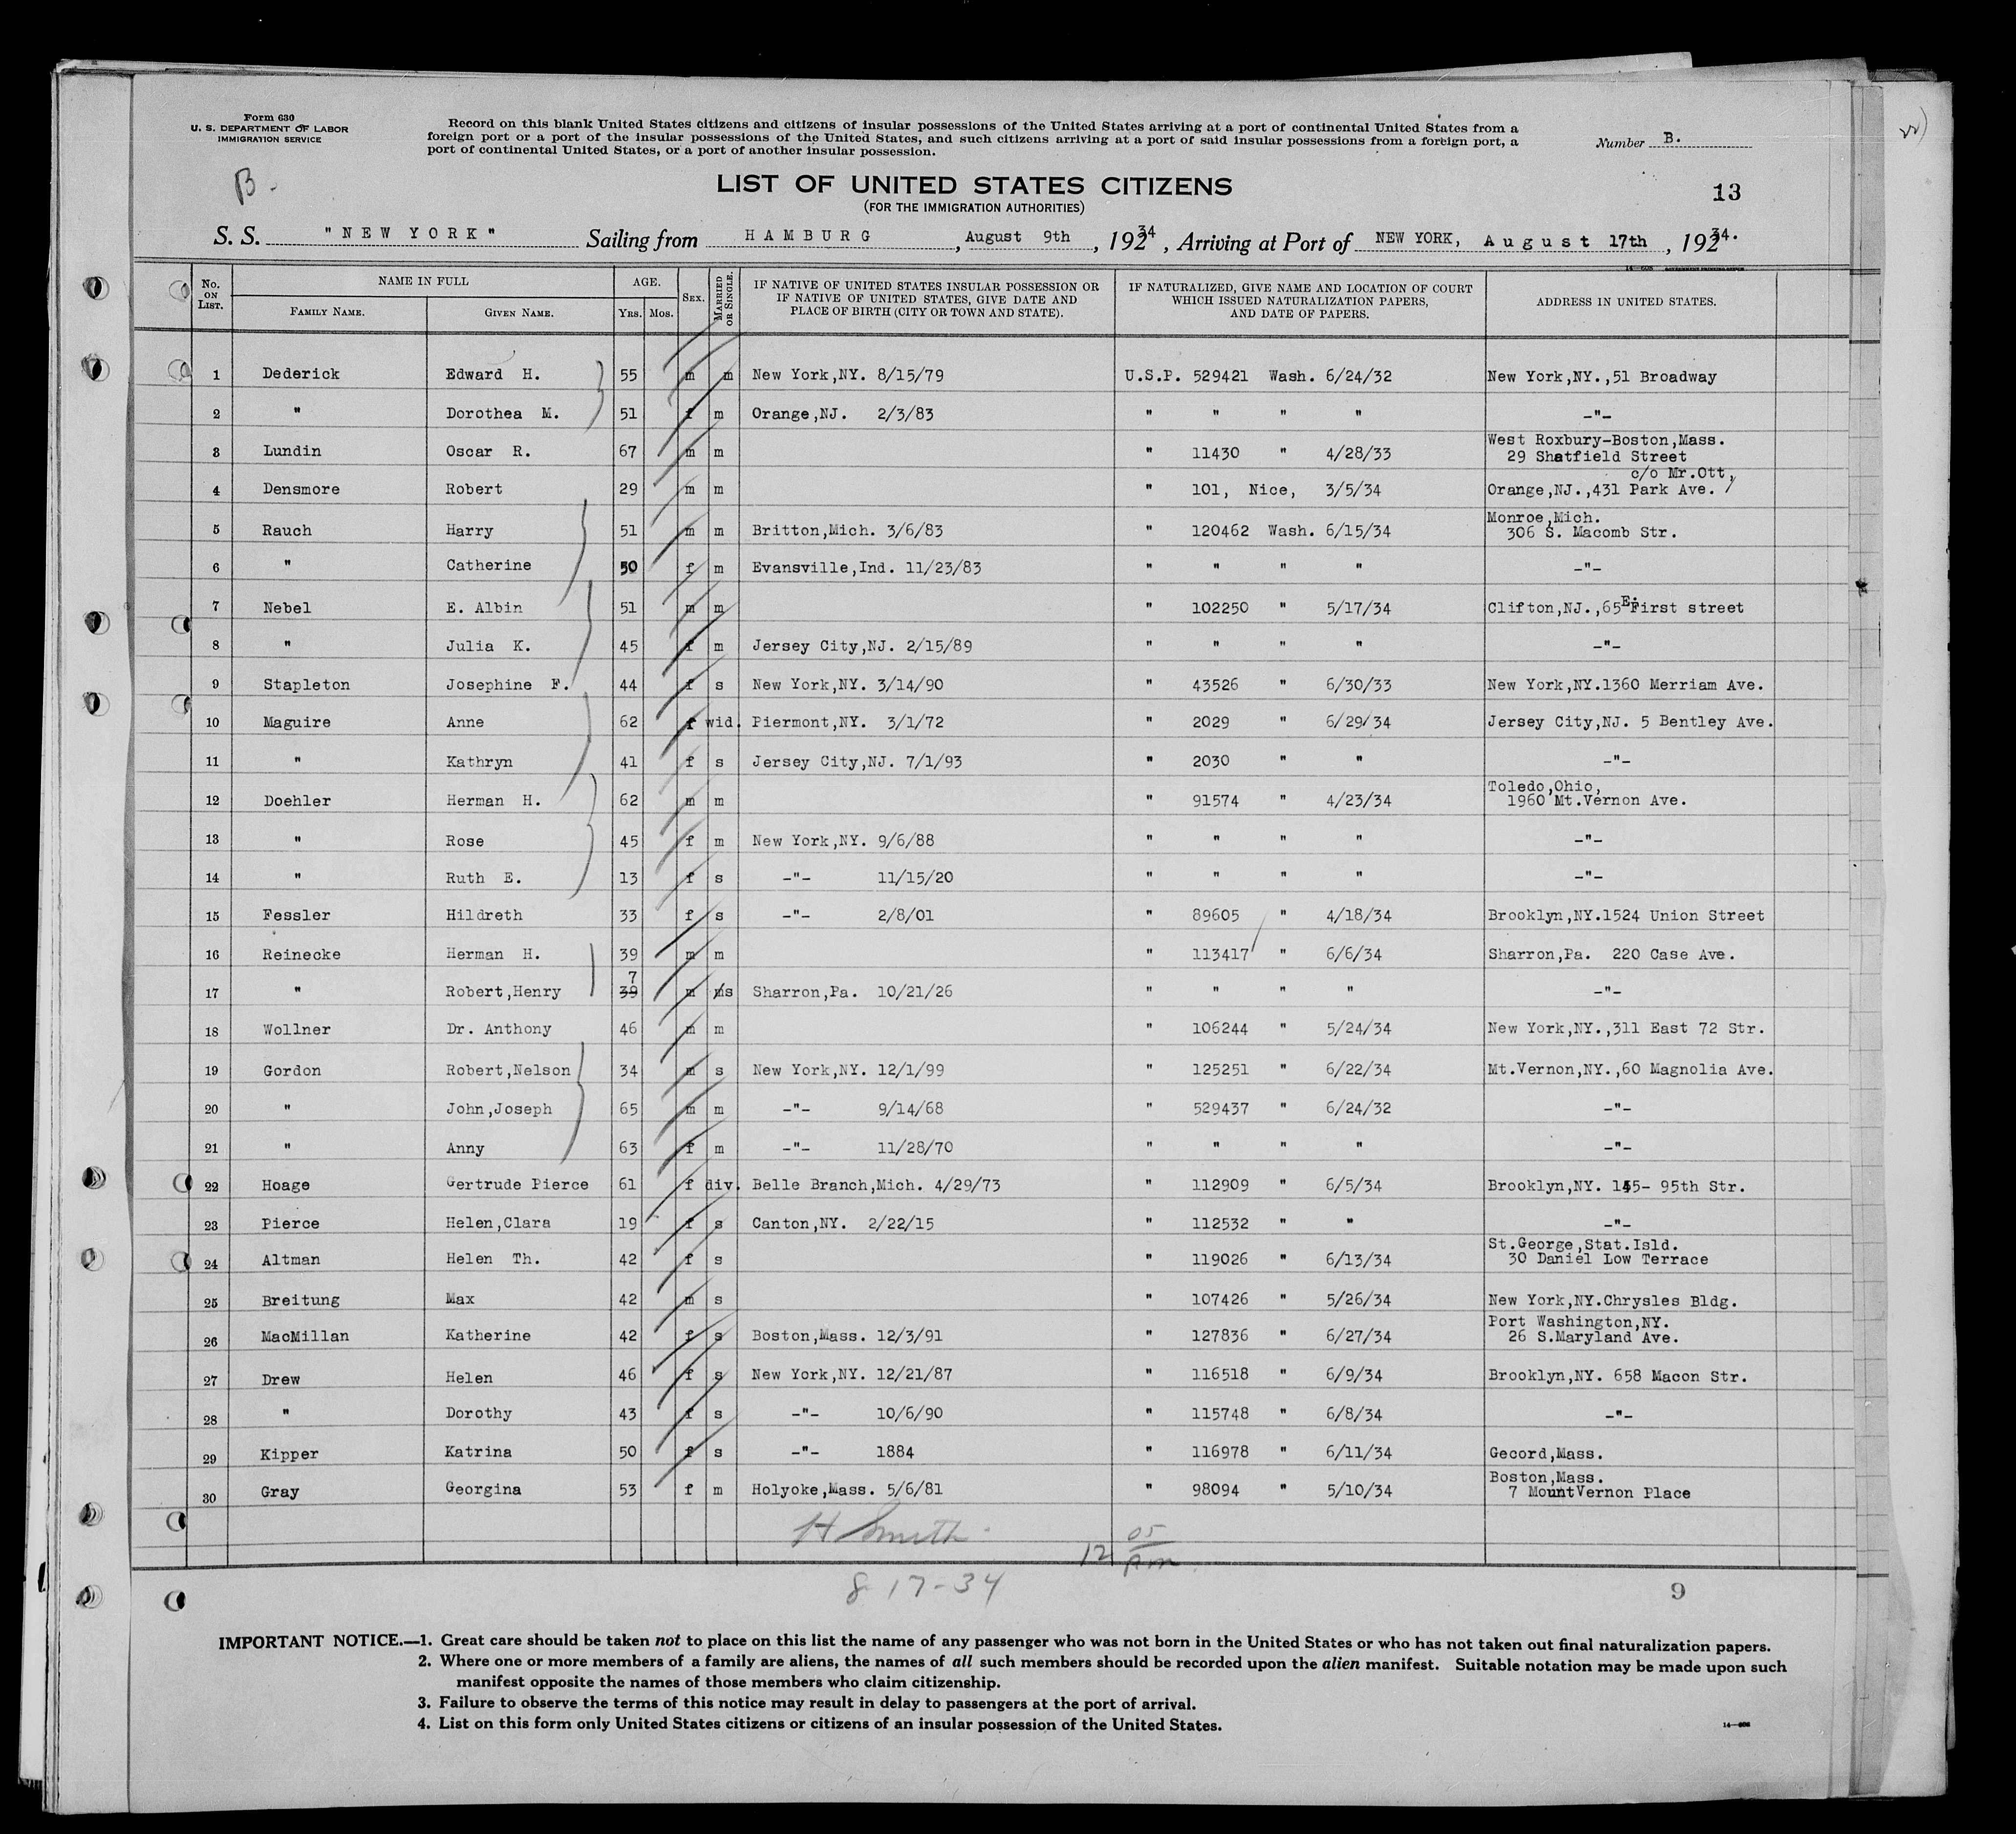 Form 630
U. S. DEPARTMENT OF LABOR
IMMIGRATION SERVICE
Record on this blank United States citizens and citizens of insular possessions of the United States arriving at a port of continental United States from a
foreign port or a port of the insular possessions of the United States, and such citizens arriving at a port of said insular possessions from a foreign port, a
port of continental United States, or a port of another insular possession.
Number B.
B.
LIST OF UNITED STATES CITIZENS
(FOR THE IMMIGRATION AUTHORITIES)
13
S. S. "NEW YORK" Sailing from HAMBURG, August 9th, 19234, Arriving at Port of NEW YORK, August 17th, 19234.
No. ON LIST. NAME IN FULL FAMILY NAME. GIVEN NAME. AGE. YRS. MOS. SEX. MARRIED OR SINGLE. IF NATIVE OF UNITED STATES INSULAR POSSESSION OR IF NATIVE OF UNITED STATES, GIVE DATE AND PLACE OF BIRTH (CITY OR TOWN AND STATE). IF NATURALIZED, GIVE NAME AND LOCATION OF COURT WHICH ISSUED NATURALIZATION PAPERS, AND DATE OF PAPERS. ADDRESS IN UNITED STATES.
1 Dederick Edward H. 55 m m New York,NY. 8/15/79 U.S.P. 529421 Wash. 6/24/32 New York,NY.,51 Broadway
2 " Dorothea M. 51 f m Orange,NJ. 2/3/83 " " " " -"-
3 Lundin Oscar R. 67 m m " 11430 " 4/28/33 West Roxbury-Boston,Mass. 29 Shatfield Street
4 Densmore Robert 29 m m " 101, Nice, 3/5/34 c/o Mr.Ott, Orange,NJ.,431 Park Ave.
5 Rauch Harry 51 m m Britton,Mich. 3/6/83 " 120462 Wash. 6/15/34 Monroe,Mich. 306 S. Macomb Str.
6 " Catherine 50 f m Evansville,Ind. 11/23/83 " " " " -"-
7 Nebel E. Albin 51 m m " 102250 " 5/17/34 Clifton,NJ.,65 E. First street
8 " Julia K. 45 f m Jersey City,NJ. 2/15/89 " " " " -"-
9 Stapleton Josephine F. 44 f s New York,NY. 3/14/90 " 43526 " 6/30/33 New York,NY.1360 Merriam Ave.
10 Maguire Anne 62 f wid. Piermont,NY. 3/1/72 " 2029 " 6/29/34 Jersey City,NJ. 5 Bentley Ave.
11 " Kathryn 41 f s Jersey City,NJ. 7/1/93 " 2030 " " -"-
12 Doehler Herman H. 62 m m " 91574 " 4/23/34 Toledo,Ohio, 1960 Mt.Vernon Ave.
13 " Rose 45 f m New York,NY. 9/6/88 " " " " -"-
14 " Ruth E. 13 f s -"- 11/15/20 " " " " -"-
15 Fessler Hildreth 33 f s -"- 2/8/01 " 89605 " 4/18/34 Brooklyn,NY.1524 Union Street
16 Reinecke Herman H. 39 m m " 113417 " 6/6/34 Sharron,Pa. 220 Case Ave.
17 " Robert,Henry 39 7 m ms Sharron,Pa. 10/21/26 " " " " -"-
18 Wollner Dr. Anthony 46 m m " 106244 " 5/24/34 New York,NY.,311 East 72 Str.
19 Gordon Robert,Nelson 34 m s New York,NY. 12/1/99 " 125251 " 6/22/34 Mt.Vernon,NY.,60 Magnolia Ave.
20 " John,Joseph 65 m m -"- 9/14/68 " 529437 " 6/24/32 -"-
21 " Anny 63 f m -"- 11/28/70 " " " " -"-
22 Hoage Gertrude Pierce 61 f div. Belle Branch,Mich. 4/29/73 " 112909 " 6/5/34 Brooklyn,NY. 145- 95th Str.
23 Pierce Helen,Clara 19 f s Canton,NY. 2/22/15 " 112532 " " -"-
24 Altman Helen Th. 42 f s " 119026 " 6/13/34 St.George,Stat.Isld. 30 Daniel Low Terrace
25 Breitung Max 42 m s " 107426 " 5/26/34 New York,NY.Chrysles Bldg.
26 MacMillan Katherine 42 f s Boston,Mass. 12/3/91 " 127836 " 6/27/34 Port Washington,NY. 26 S.Maryland Ave.
27 Drew Helen 46 f s New York,NY. 12/21/87 " 116518 " 6/9/34 Brooklyn,NY. 658 Macon Str.
28 " Dorothy 43 f s -"- 10/6/90 " 115748 " 6/8/34 -"-
29 Kipper Katrina 50 f s -"- 1884 " 116978 " 6/11/34 Gecord,Mass.
30 Gray Georgina 53 f m Holyoke,Mass. 5/6/81 " 98094 " 5/10/34 Boston,Mass. 7 MountVernon Place
H Smith
12 05 Am
8-17-34
9
IMPORTANT NOTICE.—1. Great care should be taken not to place on this list the name of any passenger who was not born in the United States or who has not taken out final naturalization papers.
2. Where one or more members of a family are aliens, the names of all such members should be recorded upon the alien manifest. Suitable notation may be made upon such
manifest opposite the names of those members who claim citizenship.
3. Failure to observe the terms of this notice may result in delay to passengers at the port of arrival.
4. List on this form only United States citizens or citizens of an insular possession of the United States.